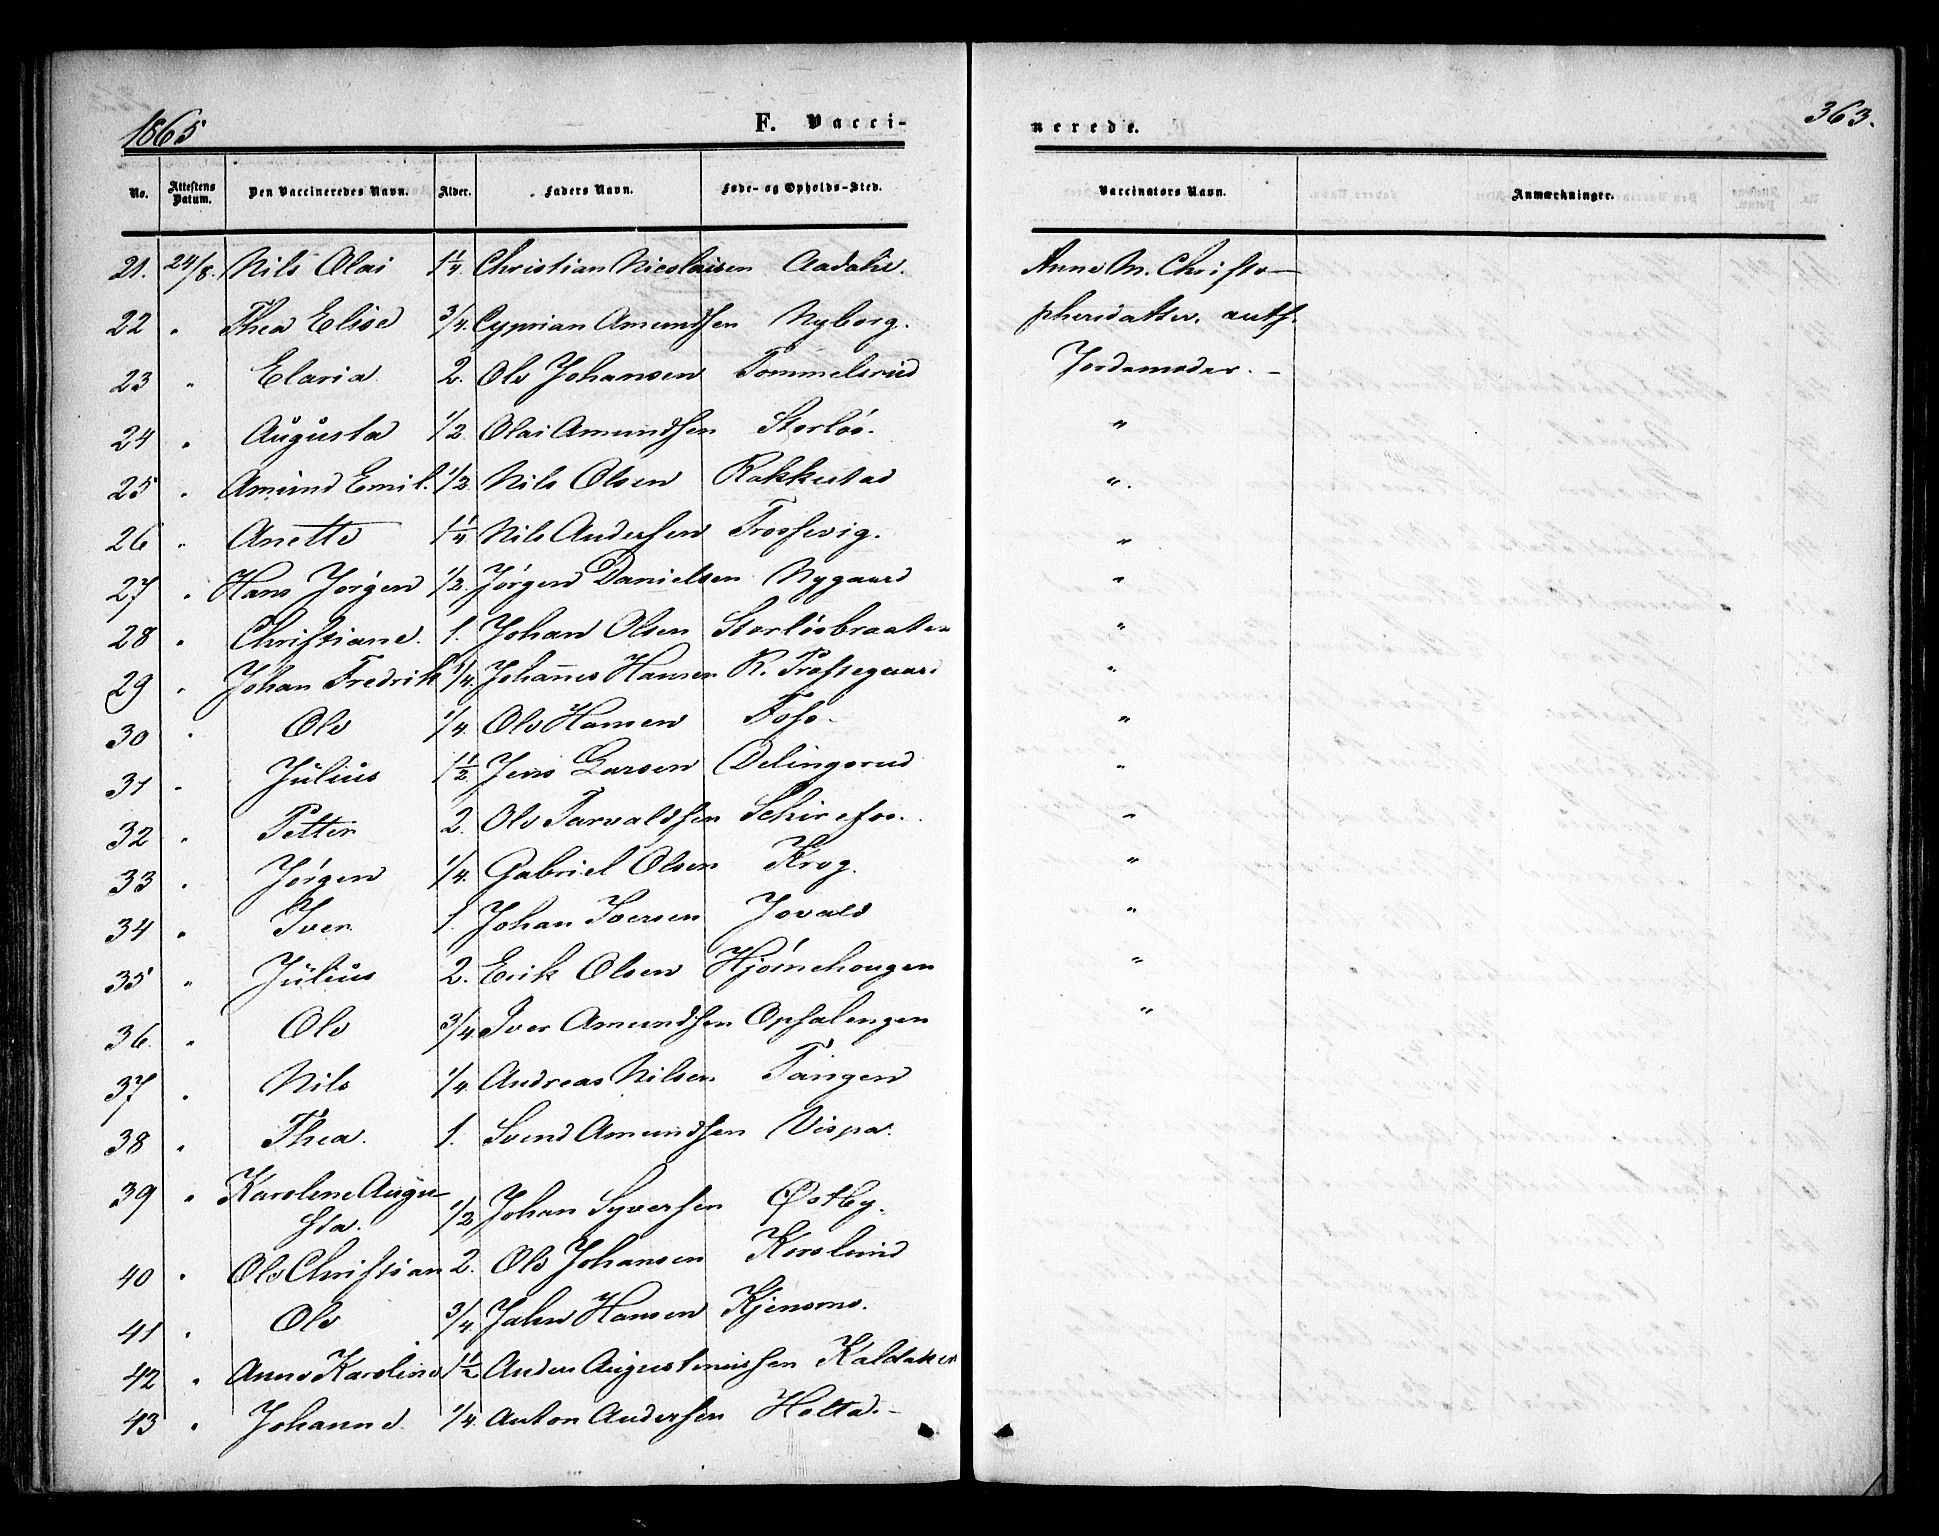 1865 F. Vacci-
nerede. 363.
No. Attestens Datum. Den Vaccineredes Navn. Alder. Faders Navn. Føde- og Opholds-Sted. Vaccinators Navn. Anmærkninger.
21. 24/8. Nils Olai 1 1/4. Christian Nicolaisen Aadahl. Anne M. Christo-
22 " Thea Elise 3/4. Cyprian Amundsen Nyborg. phersdatter, auth.
23 " Elaria 2. Ole Johansen Tommelsrud Jordemoder. -
24 " Augusta 1/2. Olai Amundsen Storløs. "
25 " Amund Emil. 1/2. Nils Olsen Rakkestad "
26 " Anette 1 1/4 Nils Andersen Trossevig. "
27 " Hans Jørgen 1/2. Jørgen Danielsen Nygaard "
28 " Christiane. 1. Johan Olsen Storløsbraaten "
29 " Johan Fredrik 1/4. Johannes Hansen R. Prestegaard "
30 " Ole 1/4. Ole Hansen Foss "
31 " Julius 1 1/2 Jens Larsen Delingsrud "
32 " Petter 2. Ole Tarvaldsen "
33 " Jørgen 1/4. Gabriel Olsen Krog. "
34 " Iver 1. Johan Iversen Jovald "
35 " Julius 2. Erik Olsen Hjørnehougen "
36 " Ole 3/4. Iver Amundsen Opsalengen "
37 " Nils 1/4. Andreas Nilsen Tangen
38 " Thea. 1. Svend Amundsen Vispa.
39 " Karoline Augu-
sta. 1/2 Johan Syversen Østby.
40 " Ole Christian 2. Ole Johansen Korslund
41 " Ole 3/4. John Hansen Kjensmo.
42 " Anne Karoline 1 1/2 Anders Augustinussen Kaldaker
43 " Johanne. 1/4. Anton Andersen Holta. -